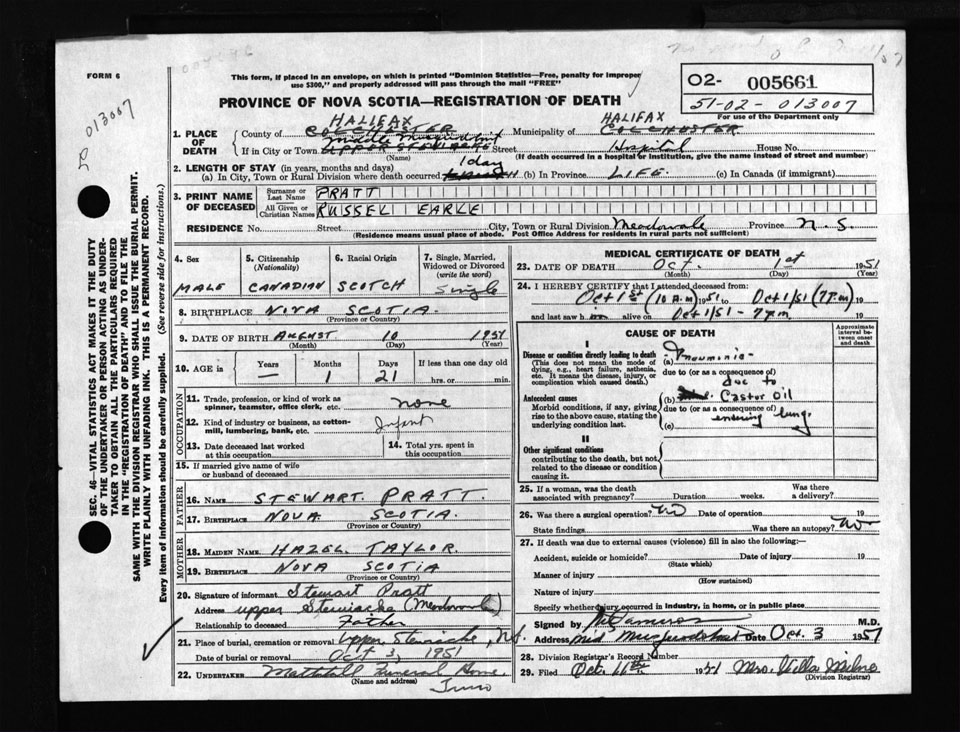 FORM 6
This form, if placed in an envelope, on which is printed "Dominion Statistics—Free, penalty for improper
use $300," and properly addressed will pass through the mail "FREE"
02- 005661
51-02-013007
For use of the Department only
013007
PROVINCE OF NOVA SCOTIA—REGISTRATION OF DEATH
1. PLACE OF DEATH
HALIFAX
County of COLCHESTER
HALIFAX
Municipality of COLCHESTER
Middle Musquodoboit
If in City or Town UPPER STEWIACKE Street Hospital House No.
(Name) (If death occurred in a hospital or institution, give the name instead of street and number)
2. LENGTH OF STAY (in years, months and days)
(a) In City, Town or Rural Division where death occurred 1 day (b) In Province LIFE. (c) In Canada (if immigrant)
3. PRINT NAME OF DECEASED
Surname or Last Name PRATT
All Given or Christian Names RUSSEL EARLE
RESIDENCE No. Street City, Town or Rural Division Meadowvale Province N.S.
(Residence means usual place of abode. Post Office Address for residents in rural parts not sufficient)
4. Sex
MALE
5. Citizenship
(Nationality)
CANADIAN
6. Racial Origin
SCOTCH
7. Single, Married,
Widowed or Divorced
(write the word)
Single
8. BIRTHPLACE NOVA SCOTIA
(Province or Country)
9. DATE OF BIRTH AUGUST 10 1951
(Month) (Day) (Year)
10. AGE
Years Months Days If less than one day old
— 1 21 hrs. or min.
OCCUPATION
11. Trade, profession, or kind of work as
spinner, teamster, office clerk, etc. none
12. Kind of industry or business, as cotton-
mill, lumbering, bank, etc. Infant
13. Date deceased last worked
at this occupation
14. Total yrs. spent in
this occupation
15. If married give name of wife
or husband of deceased
FATHER
16. NAME STEWART PRATT.
17. BIRTHPLACE NOVA SCOTIA.
(Province or Country)
MOTHER
18. MAIDEN NAME HAZEL TAYLOR.
19. BIRTHPLACE NOVA SCOTIA
(Province or Country)
20. Signature of informant Stewart Pratt
Address Upper Stewiacke (Meadowvale)
Relationship to deceased Father
21. Place of burial, cremation or removal Upper Stewiacke, N.S.
Date of burial or removal Oct 3, 1951
22. UNDERTAKER Mattatall Funeral Home
(Name and address)
Truro
MEDICAL CERTIFICATE OF DEATH
23. DATE OF DEATH Oct. 1st 1951
(Month) (Day) (Year)
24. I HEREBY CERTIFY that I attended deceased from:
Oct 1st (10 A.m) 1951 to Oct 1/51 (7 p.m) 19
and last saw him alive on Oct 1/51 - 7 pm 19
CAUSE OF DEATH
Approximate
interval be-
tween onset
and death
I
Disease or condition directly leading to death
(This does not mean the mode of
dying, e.g., heart failure, asthenia,
etc. It means the disease, injury, or
complication which caused death.)
(a) Pneumonia
due to (or as a consequence of)
due to
Antecedent causes
Morbid conditions, if any, giving
rise to the above cause, stating the
underlying condition last.
(b) Castor Oil
due to (or as a consequence of)
(c) entering lung.
II
Other significant conditions
contributing to the death, but not
related to the disease or condition
causing it.
25. If a woman, was the death
associated with pregnancy? Duration weeks. Was there
a delivery?
26. Was there a surgical operation? No Date of operation 19
State findings Was there an autopsy? No
27. If death was due to external causes (violence) fill in also the following:—
Accident, suicide or homicide? Date of injury 19
(State which)
Manner of injury
(How sustained)
Nature of injury
Specify whether injury occurred in industry, in home, or in public place
Signed by M.D.
Address Mid Musquodoboit Date Oct. 3 1951
28. Division Registrar's Record Number
29. Filed Oct. 1951 Mrs. Milne
(Division Registrar)
SEC. 46—VITAL STATISTICS ACT MAKES IT THE DUTY
OF THE UNDERTAKER OR PERSON ACTING AS UNDER-
TAKER TO OBTAIN ALL THE PARTICULARS REQUIRED
IN THE "REGISTRATION OF DEATH" AND TO FILE THE
SAME WITH THE DIVISION REGISTRAR WHO SHALL ISSUE THE BURIAL PERMIT.
WRITE PLAINLY WITH UNFADING INK. THIS IS A PERMANENT RECORD.
Every item of information should be carefully supplied. (See reverse side for instructions.)